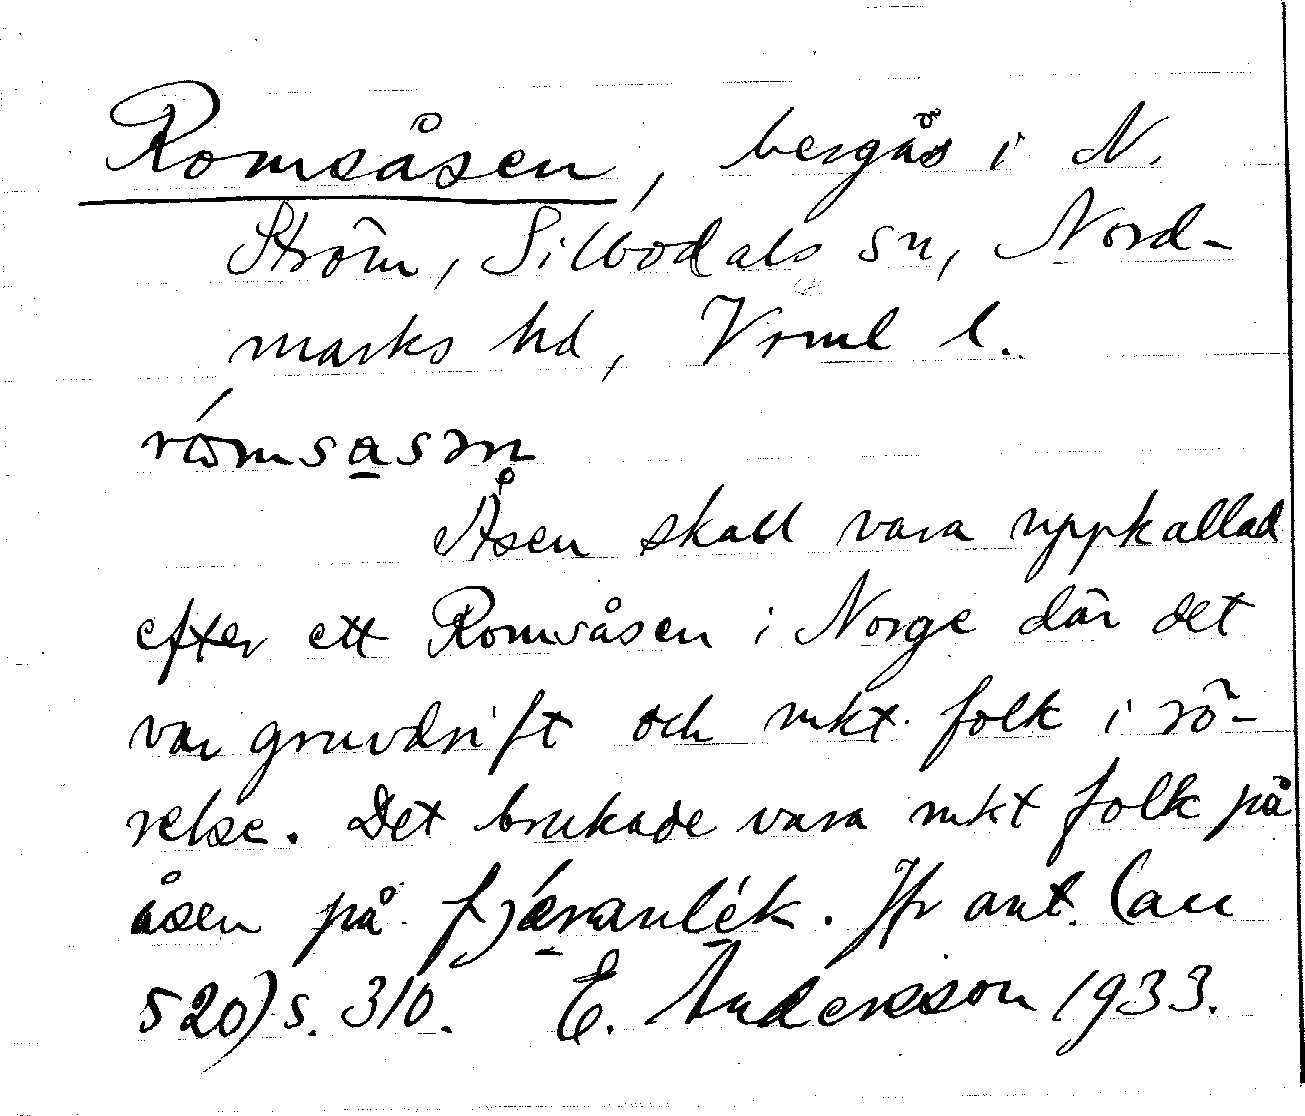 Romsåsen, bergås i N.
Ström, Silbodals sn, Nord-
marks hd, Vrml l.
rómsasən
Åsen skall vara uppkallad
efter ett Romsåsen i Norge där det
var gruvdrift och mkt folk i rö-
relse. Det brukade vara mkt folk på
åsen på fjǽranlék. Jfr ant. (acc
520) s. 310. E. Andersson 1933.